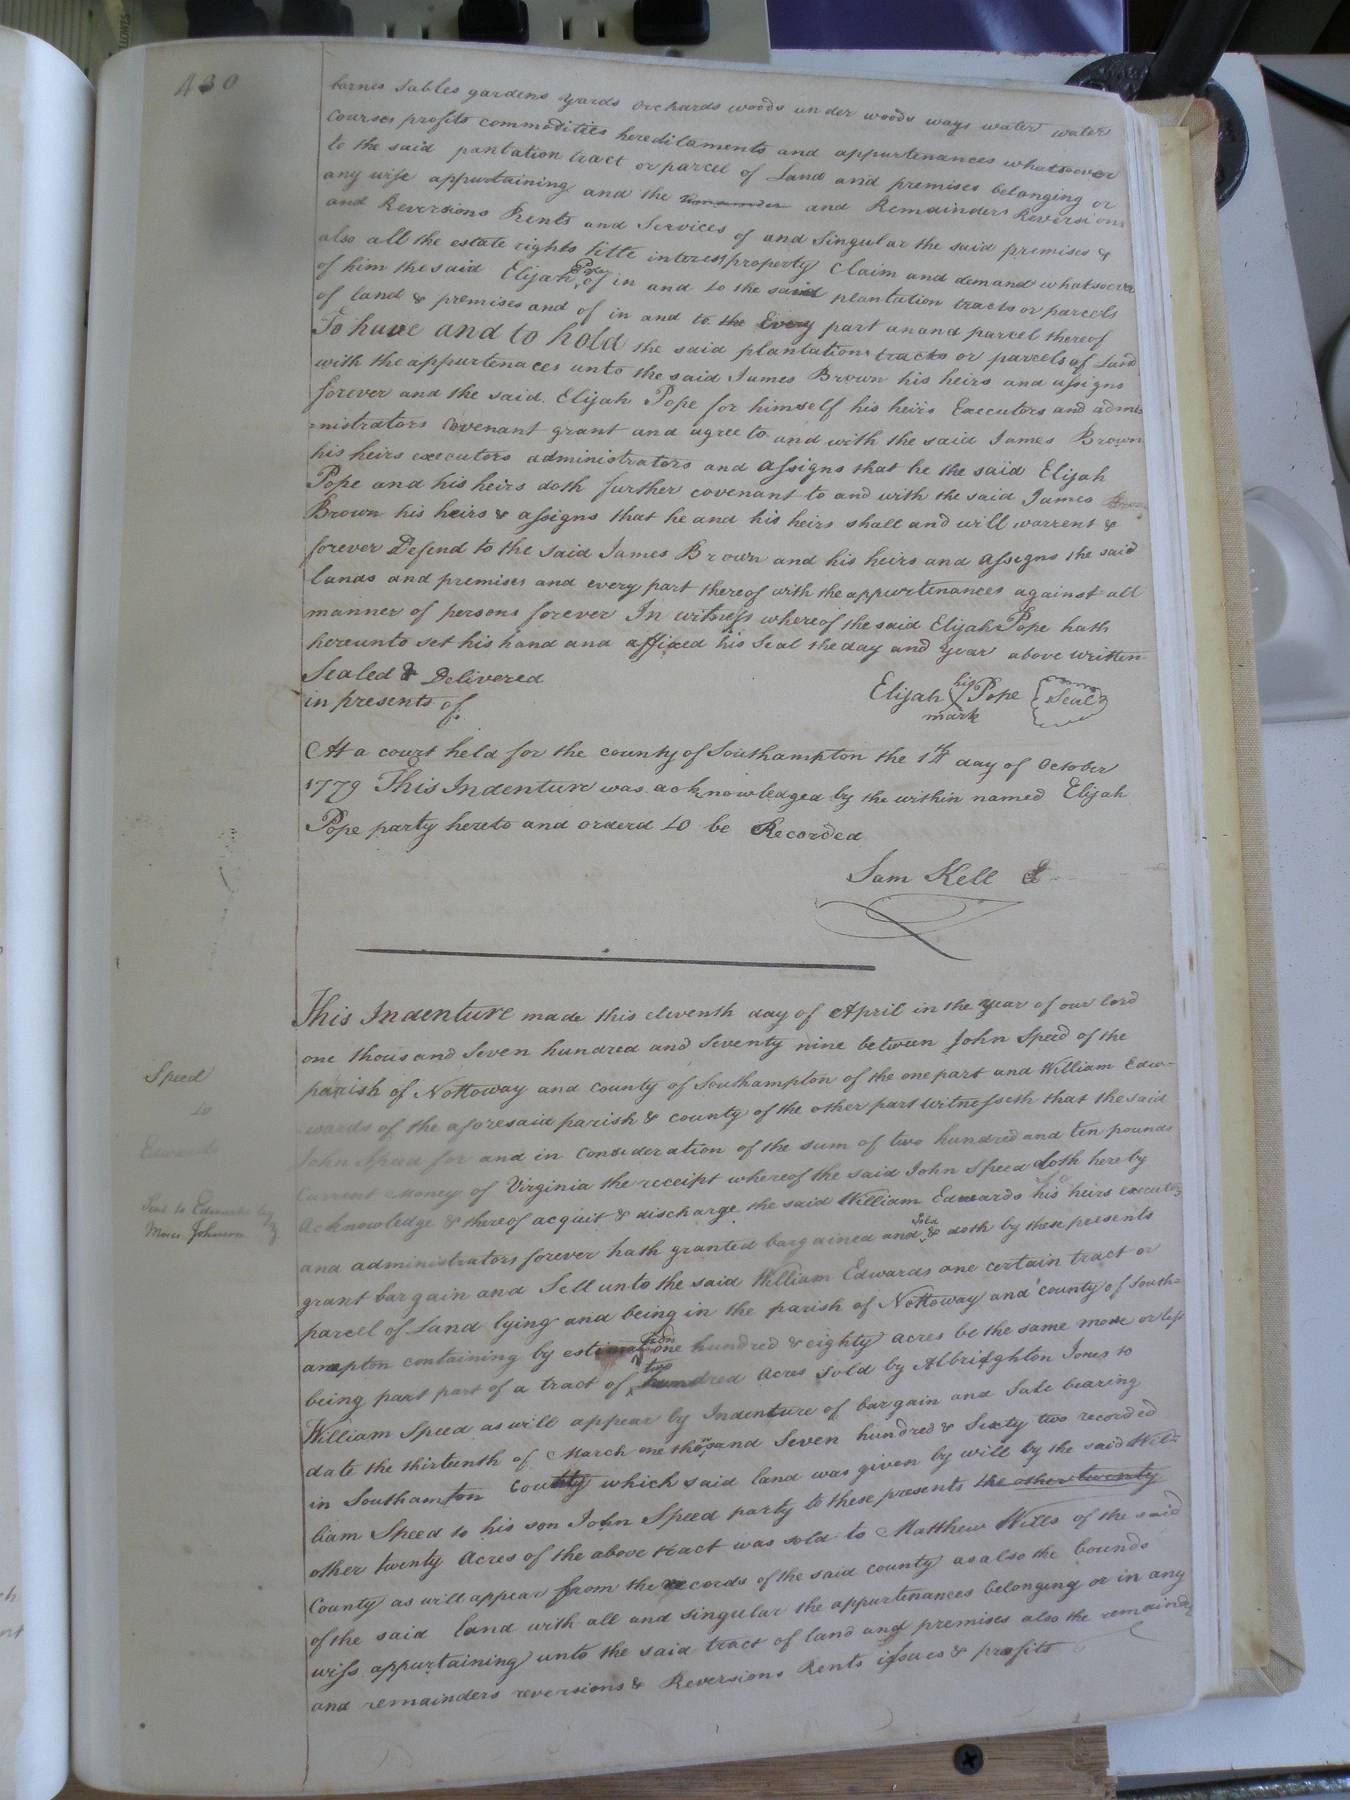 430
barnes Stables gardens yards Orchards woods under woods ways water water
Courses profits commodities hereditaments and appurtenances whatsoever
to the said pantation tract or parcel of Land and premises belonging or
any wise appurtaining and the and Remainders Reversions
and Reversions Rents and Services of and Singular the said premises &
also all the estate rights title interest property claim and demand whatsoever
of him the said Elijah Pope of in and to the said plantation tracts or parcels
of land & premises and of in and to the Every part anand parcel thereof
To have and to hold the said plantations tracts or parcels of Land
with the appurtenaces unto the said James Brown his heirs and assigns
forever and the said Elijah Pope for himself his heirs Executors and admi=
=nistrators Covenant grant and agree to and with the said James Brown
his heirs executors administrators and assigns that he the said Elijah
Pope and his heirs doth further covenant to and with the said James
Brown his heirs & assigns that he and his heirs shall and will warrent &
forever Defend to the said James Brown and his heirs and assigns the said
lands and premises and every part thereof with the appurtenances against all
manner of persons forever In witness whereof the said Elijah Pope hath
hereunto set his hand and affixed his Seal the day and year above written
Sealed & Delivered
in presents of
Elijah his X mark Pope Seal
At a court held for the county of Southampton the day of October
1779 This Indenture was acknowledged by the within named Elijah
Pope party hereto and orderd to be Recorded
Sam Kell
This Indenture made this eleventh day of April in the year of our lord
one thousand Seven hundred and Seventy nine between John Speed of the
parish of Nottoway and county of Southampton of the one part and William Edw-
wards of the aforesaid parish & county of the other part Witnesseth that the said
John Speed for and in Consideration of the sum of two hundred and ten pounds
Current Money of Virginia the receipt whereof the said John Speed doth hereby
Acknowledge & thereof acquit & discharge the said William Edwards his heirs executors
and administrators forever hath granted bargained and Sold & doth by these presents
grant bargain and Sell unto the said William Edwards one certain tract or
parcel of Land lying and being in the parish of Nottoway and county of South=
ampton containing by estimation one hundred & eighty acres be the same more or less
being part part of a tract of two hundred acres sold by Albridghton Jones to
William Speed as will appear by Indenture of bargain and Sale bearing
date the thirteenth of March one thousand Seven hundred & Sixty two recorded
in Southamton County which said land was given by will by the said Wil=
liam Speed to his son John Speed party to these presents the other twenty
other twenty Acres of the above tract was sold to Matthew Wills of the said
County as will appear from the records of the said county as also the bounds
of the said land with all and singular the appurtenances belonging or in any
wiss appurtaining unto the said tract of land and premises also the remainder
and remainders reversions & Reversions Rents issues & profits
Speed
to
Edwards
Sent to Edwards by
Johnson